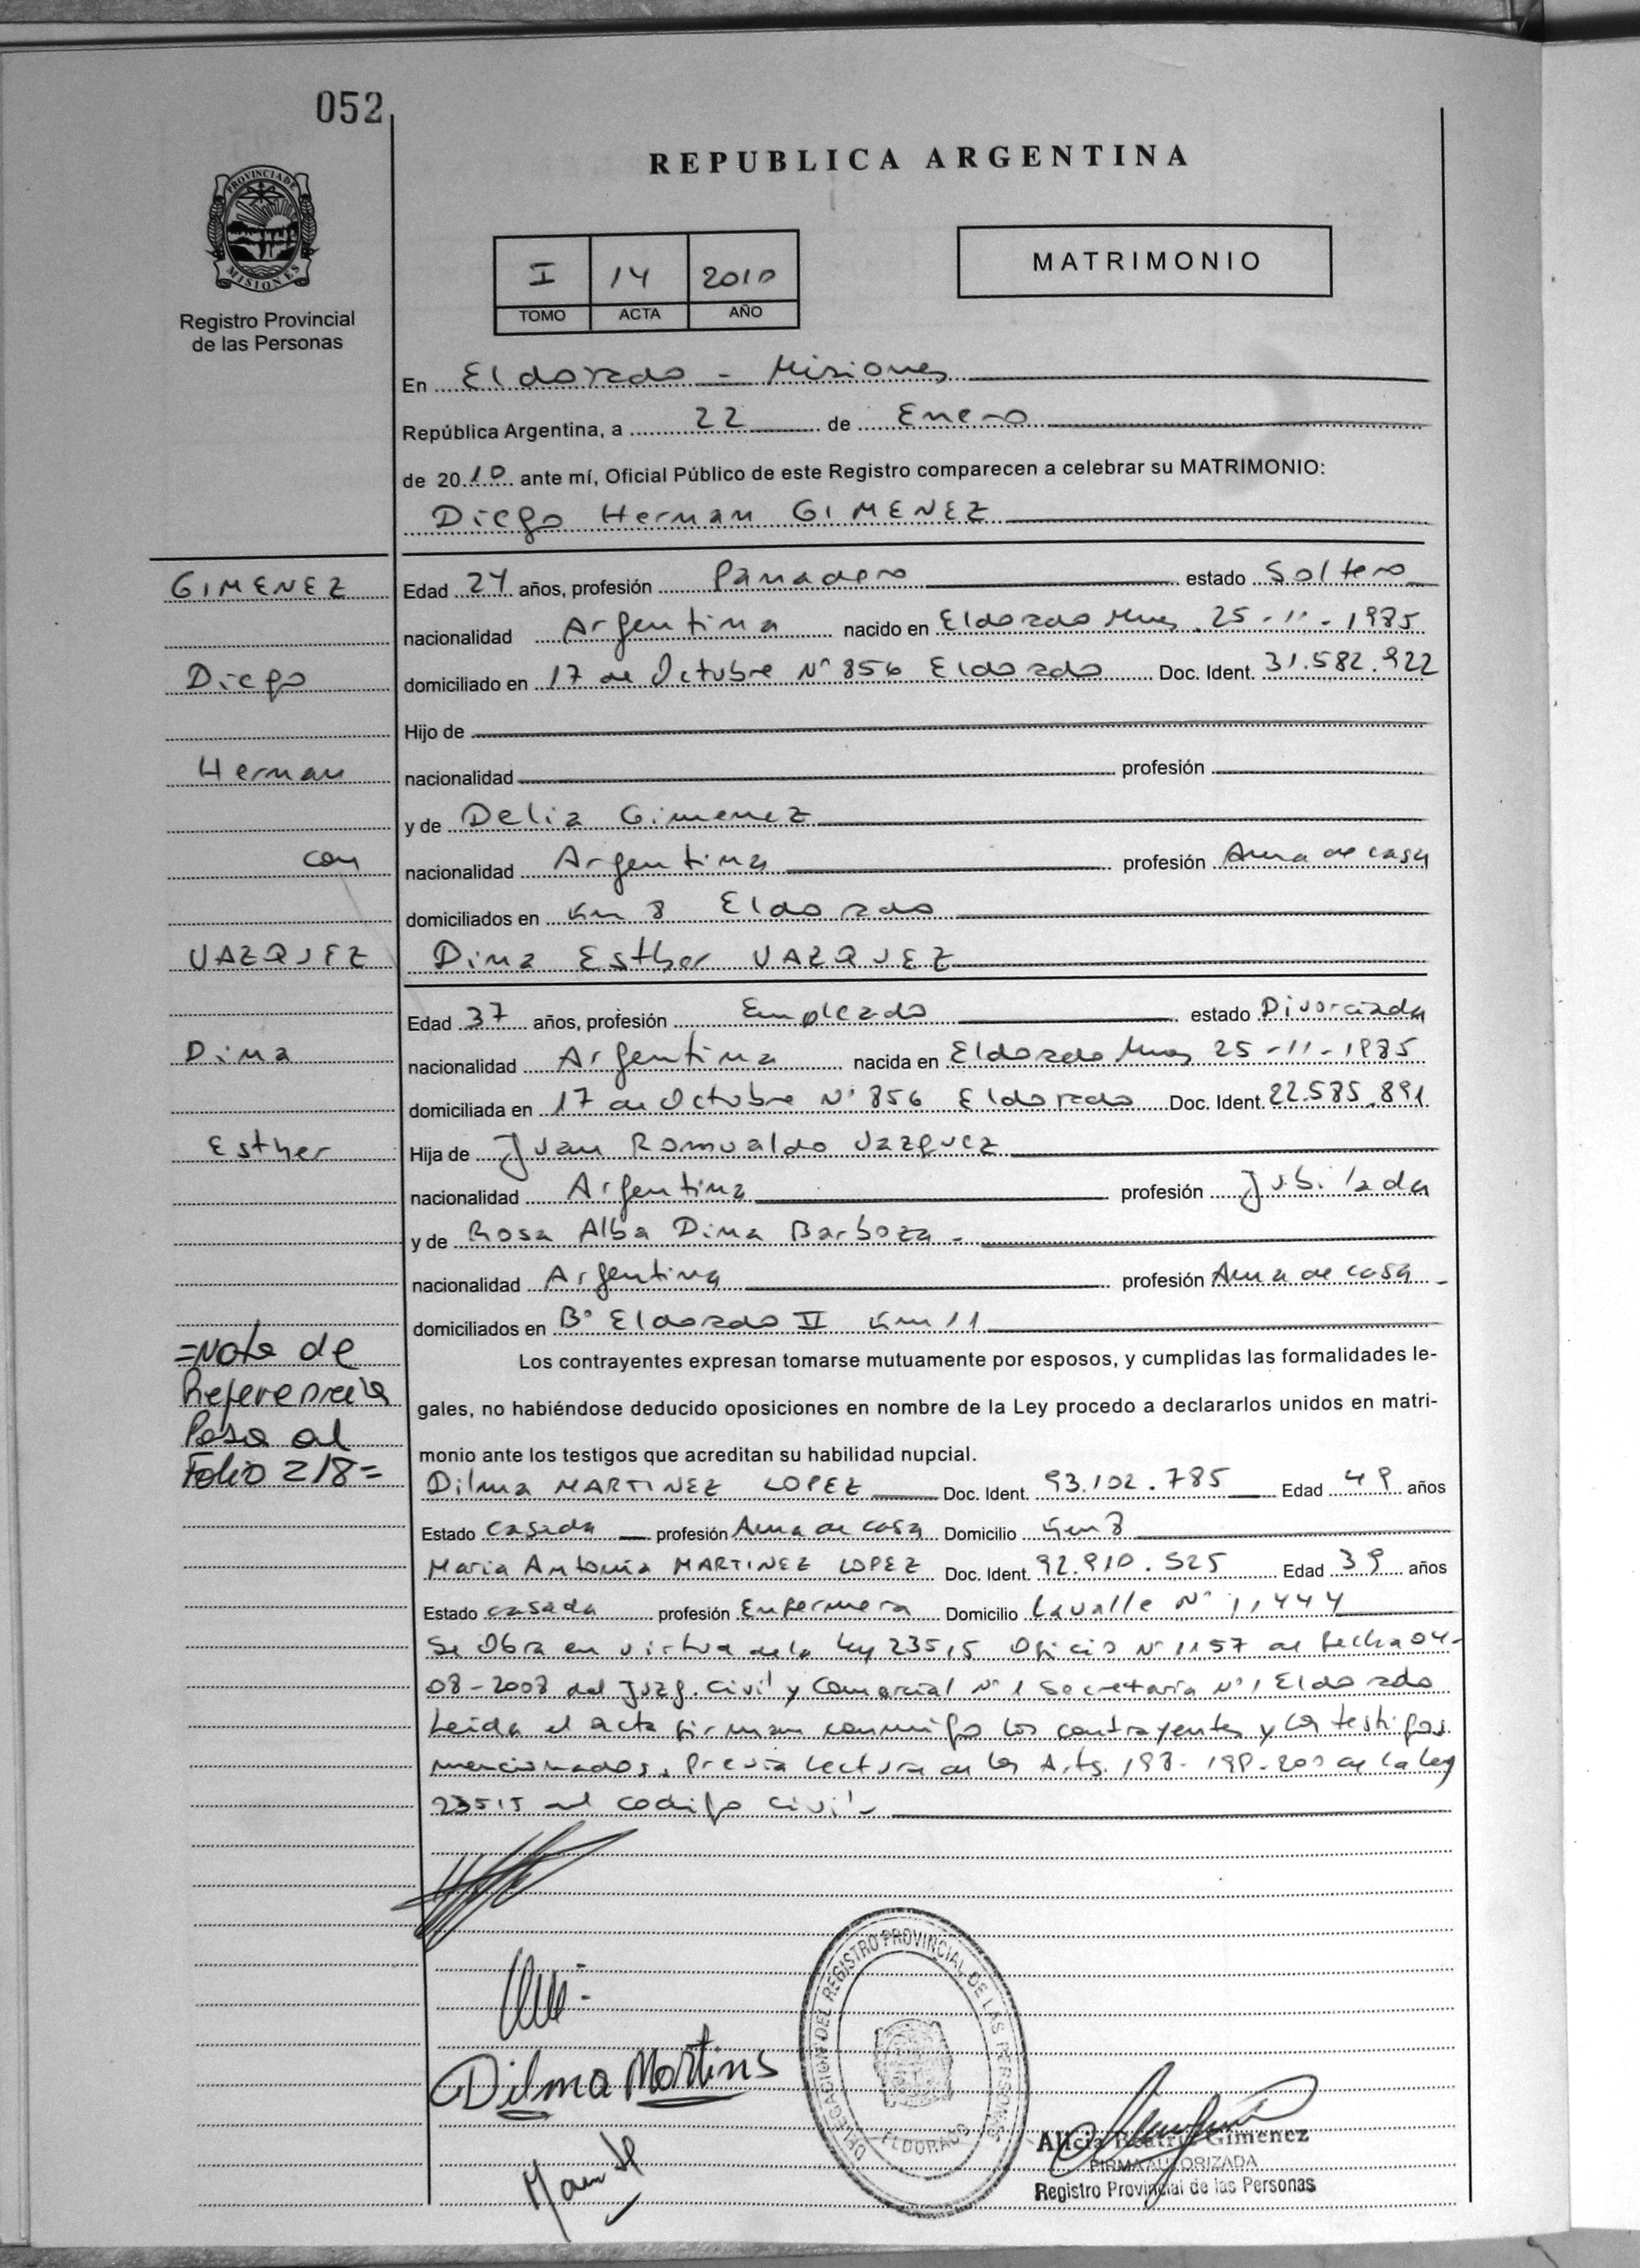 052
REPUBLICA ARGENTINA
PROVINCIA DE MISIONES
Registro Provincial
de las Personas
I 14 2010
TOMO ACTA AÑO
MATRIMONIO
En Eldorado - Misiones
República Argentina, a 22 de Enero
de 2010 ante mí, Oficial Público de este Registro comparecen a celebrar su MATRIMONIO:
Diego Hernan GIMENEZ
GIMENEZ
Edad 24 años, profesión Panadero estado Soltero
nacionalidad Argentina nacido en Eldorado Mnes 25-11-1985
Diego
domiciliado en 17 de Octubre N° 856 Eldorado Doc. Ident. 31.582.922
Hijo de
Hernan
nacionalidad profesión
y de Delia Gimenez
con
nacionalidad Argentina profesión Ama de casa
domiciliados en Km 8 Eldorado
VAZQUEZ
Dina Esther VAZQUEZ
Edad 37 años, profesión Empleado estado Divorciada
Dina
nacionalidad Argentina nacida en Eldorado Mnes 25-11-1985
domiciliada en 17 de Octubre N° 856 Eldorado Doc. Ident. 22.585.891
Esther
Hija de Juan Romualdo Vazquez
nacionalidad Argentina profesión Jubilada
y de Rosa Alba Dina Barboza -
nacionalidad Argentina profesión Ama de casa -
domiciliados en B° Eldorado II Km 11
=Nota de
Referencia
Pasa al
Folio 218=
Los contrayentes expresan tomarse mutuamente por esposos, y cumplidas las formalidades le-
gales, no habiéndose deducido oposiciones en nombre de la Ley procedo a declararlos unidos en matri-
monio ante los testigos que acreditan su habilidad nupcial.
Dilma MARTINEZ LOPEZ Doc. Ident. 93.102.785 Edad 49 años
Estado casada profesión Ama de casa Domicilio Km 8
Maria Antonia MARTINEZ LOPEZ Doc. Ident. 92.910.525 Edad 39 años
Estado casada profesión Enfermera Domicilio Lavalle N° 11,444
Se Obra en virtud de la ley 23515 Oficio N° 1157 de fecha 04-
08-2008 del Juzg. Civil y Comercial N° 1 Secretaria N° 1 Eldorado
Leida el acta firman conmigo los contrayentes y los testigos
mencionados, Previa Lectura de los Arts. 198-199-200 de la ley
23515 del codigo civil-
Dilma Martins
DELEGACION DEL REGISTRO PROVINCIAL DE LAS PERSONAS
ELDORADO
Alicia Beatriz Gimenez
FIRMA AUTORIZADA
Registro Provincial de las Personas